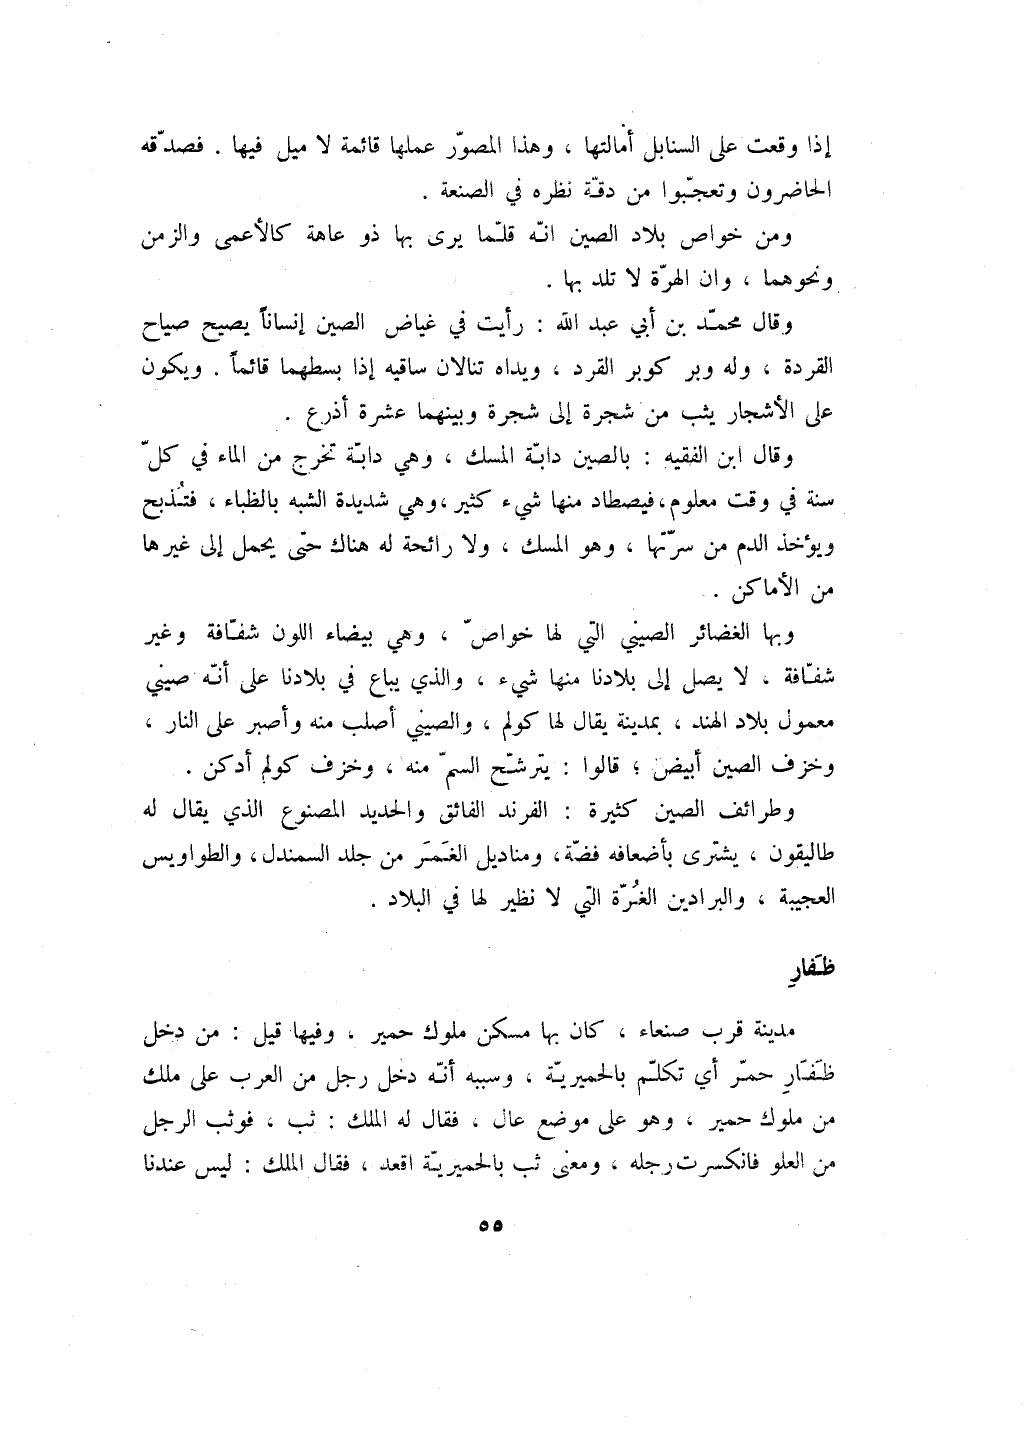 إذا وقعت على السنابل أمالتها ، وهذا المصوّر عملها قائمة لا ميل فيها . فصدّقه
الحاضرون وتعجّبوا من دقّة نظره في الصنعة .
ومن خواص بلاد الصين انّه قلّما يرى بها ذو عاهة كالأعمى والزمن
ونحوهما ، وان الهرّة لا تلد بها .
وقال محمّد بن أبي عبد الله : رأيت في غياض الصين إنساناً يصيح صياح
القردة ، وله وبر كوبر القرد ، ويداه تنالان ساقيه إذا بسطهما قائماً . ويكون
على الأشجار يثب من شجرة إلى شجرة وبينهما عشرة أذرع .
وقال ابن الفقيه : بالصين دابّة المسك ، وهي دابّة تخرج من الماء في كلّ
سنة في وقت معلوم ، فيصطاد منها شيء كثير ، وهي شديدة الشبه بالظباء ، فتُذبح
ويؤخذ الدم من سرّتها ، وهو المسك ، ولا رائحة له هناك حتّى يحمل إلى غيرها
من الأماكن .
وبها الغضائر الصيني التي لها خواصّ ، وهي بيضاء اللون شفّافة وغير
شفّافة ، لا يصل إلى بلادنا منها شيء ، والذي يباع في بلادنا على أنّه صيني
معمول بلاد الهند ، بمدينة يقال لها كولم ، والصيني أصلب منه وأصبر على النار ،
وخزف الصين أبيض ؛ قالوا : يترشّح السمّ منه ، وخزف كولم أدكن .
وطرائف الصين كثيرة : الفرند الفائق والحديد المصنوع الذي يقال له
طاليقون ، يشترى بأضعافه فضّة ، ومناديل الغَمَرَ من جلد السمندل ، والطواويس
العجيبة ، والبرادين الغُرّة التي لا نظير لها في البلاد .
ظَفارِ
مدينة قرب صنعاء ، كان بها مسكن ملوك حمير ، وفيها قيل : من دخل
ظَفَارِ حمّر أي تكلّم بالحميريّة ، وسببه أنّه دخل رجل من العرب على ملك
من ملوك حمير ، وهو على موضع عال ، فقال له الملك : ثب ، فوثب الرجل
من العلو فانكسرت رجله ، ومعنى ثب بالحميريّة اقعد ، فقال الملك : ليس عندنا
٥٥